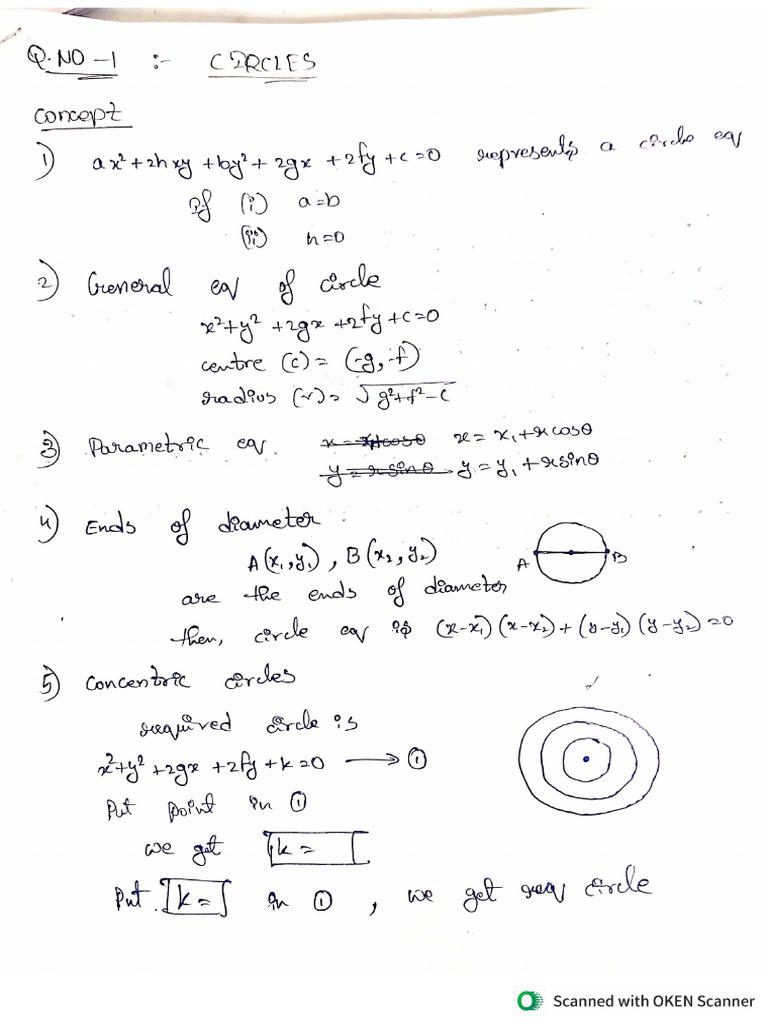 Q.NO-1 :- CIRCLES
Concept
1) ax²+2hxy+by²+2gx+2fy+c=0 represents a circle eq
If (i) a=b
(ii) h=0
2) General eq of circle
x²+y²+2gx+2fy+c=0
centre (c) = (-g,-f)
radius (r) = √g²+f²-c
3) Parametric eq x = x₁+r cosθ
y = y₁+r sinθ
4) Ends of diameter
A(x₁,y₁), B(x₂,y₂)
A B
are the ends of diameter
then, circle eq is (x-x₁)(x-x₂)+(y-y₁)(y-y₂)=0
5) Concentric circles
required circle is
x²+y²+2gx+2fy+k=0 → ①
Put point in ①
we get k=
Put k= in ①, we get req circle
Scanned with OKEN Scanner